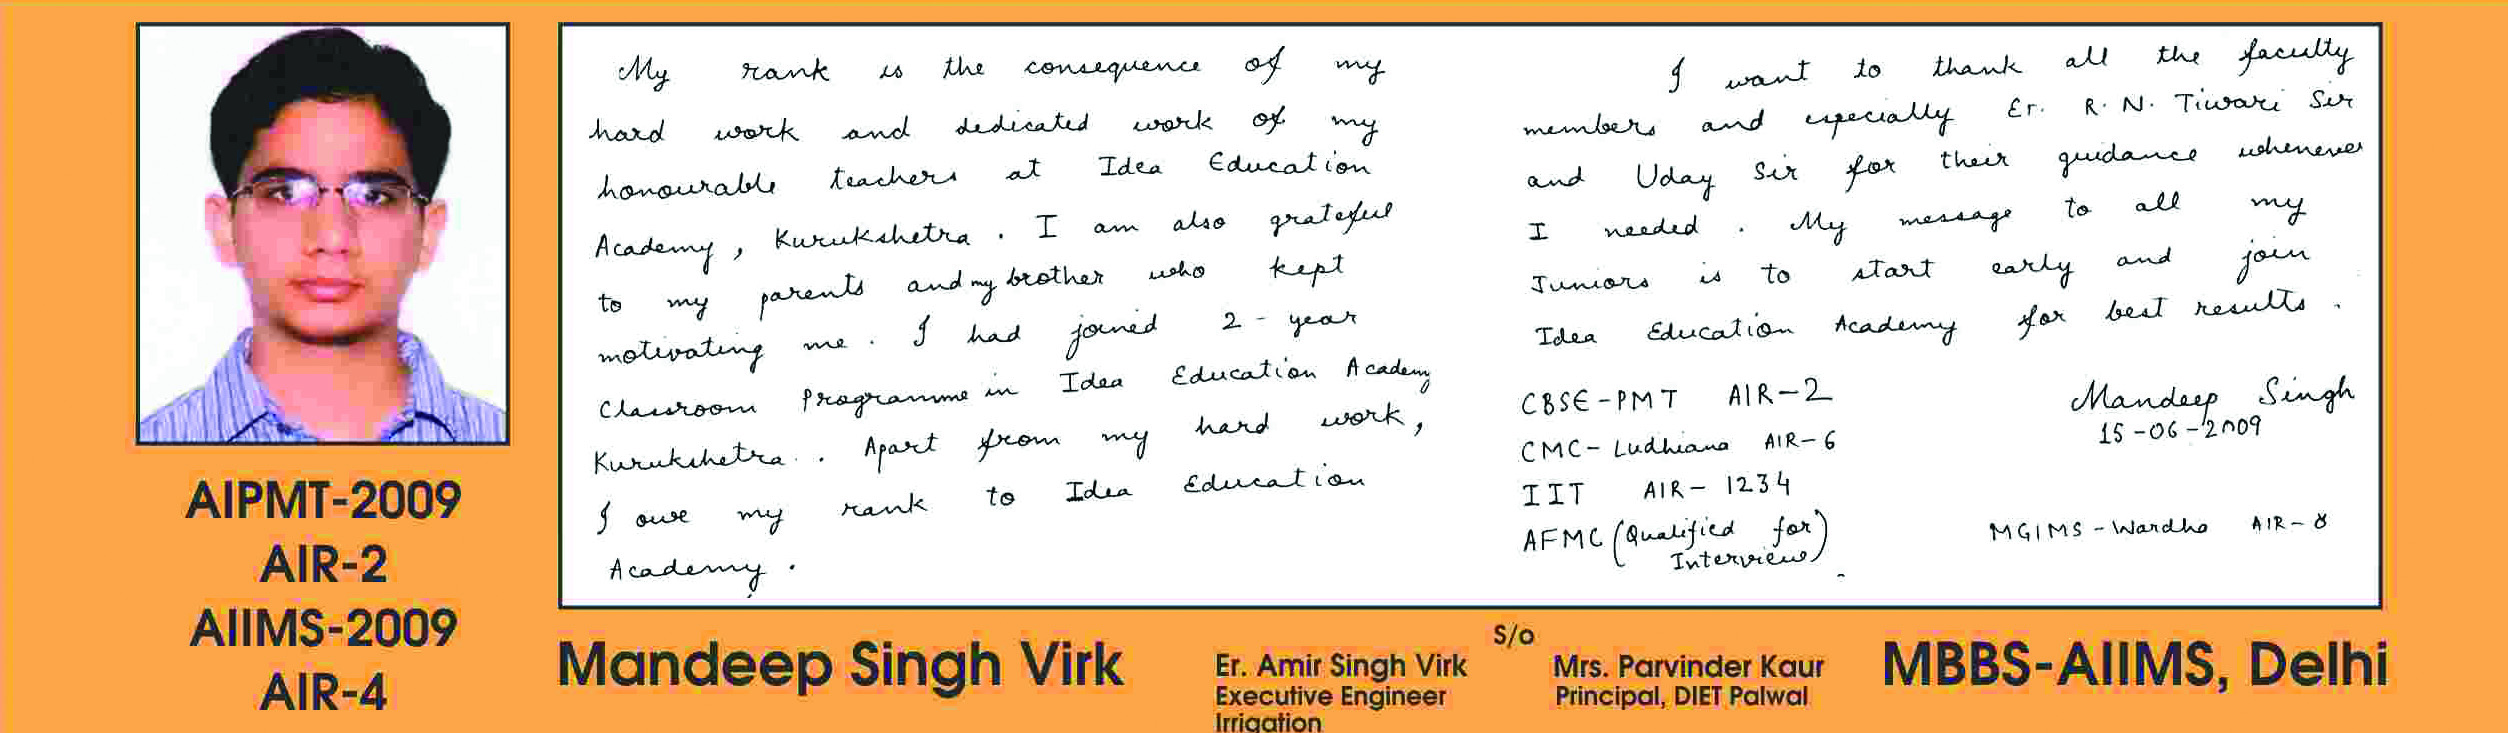 My rank is the consequence of my
hard work and dedicated work of my
honourable teachers at Idea Education
Academy, Kurukshetra. I am also grateful
to my parents and my brother who kept
motivating me. I had joined 2-year
Classroom Programme in Idea Education Academy
Kurukshetra.. Apart from my hard work,
I owe my rank to Idea Education
Academy.
I want to thank all the faculty
members and especially Er. R. N. Tiwari Sir
and Uday Sir for their guidance whenever
I needed. My message to all my
Juniors is to start early and join
Idea Education Academy for best results.
CBSE-PMT AIR-2
CMC-Ludhiana AIR-6
IIT AIR-1234
AFMC (Qualified for
Interview)
Mandeep Singh
15-06-2009
MGIMS-Wardha AIR-8
AIPMT-2009
AIR-2
AIIMS-2009
AIR-4
Mandeep Singh Virk
S/o
Er. Amir Singh Virk
Executive Engineer
Irrigation
Mrs. Parvinder Kaur
Principal, DIET Palwal
MBBS-AIIMS, Delhi